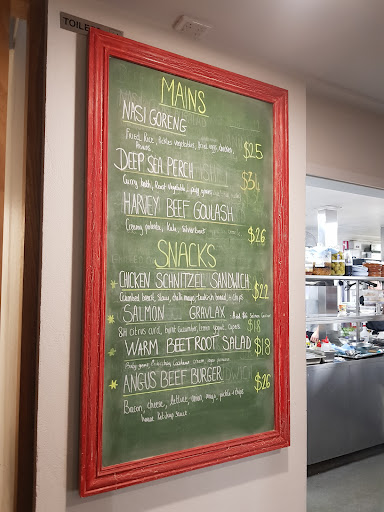 TOILE
MAINS
NASI GORENG
Fried Rice, Pickles vegetables, fried egg, chillies, $25
Prawns
DEEP SEA PERCH $34
Curry broth, Roast vegetable,
HARVEY BEEF GOULASH
Creamy polenta, Kale, $26
SNACKS
CHICKEN SCHNITZEL SANDWICH
bread, Slaw, chilli mayo, & chips $22
SALMON GRAVLAX Add
citrus curd, burnt cucumber, lemon yogurt, capers $18
WARM BEETROOT SALAD $18
cream,
ANGUS BEEF BURGER $26
Bacon, cheese, lettuce, onion, mayo, pickle & chips
house ketchup sauce